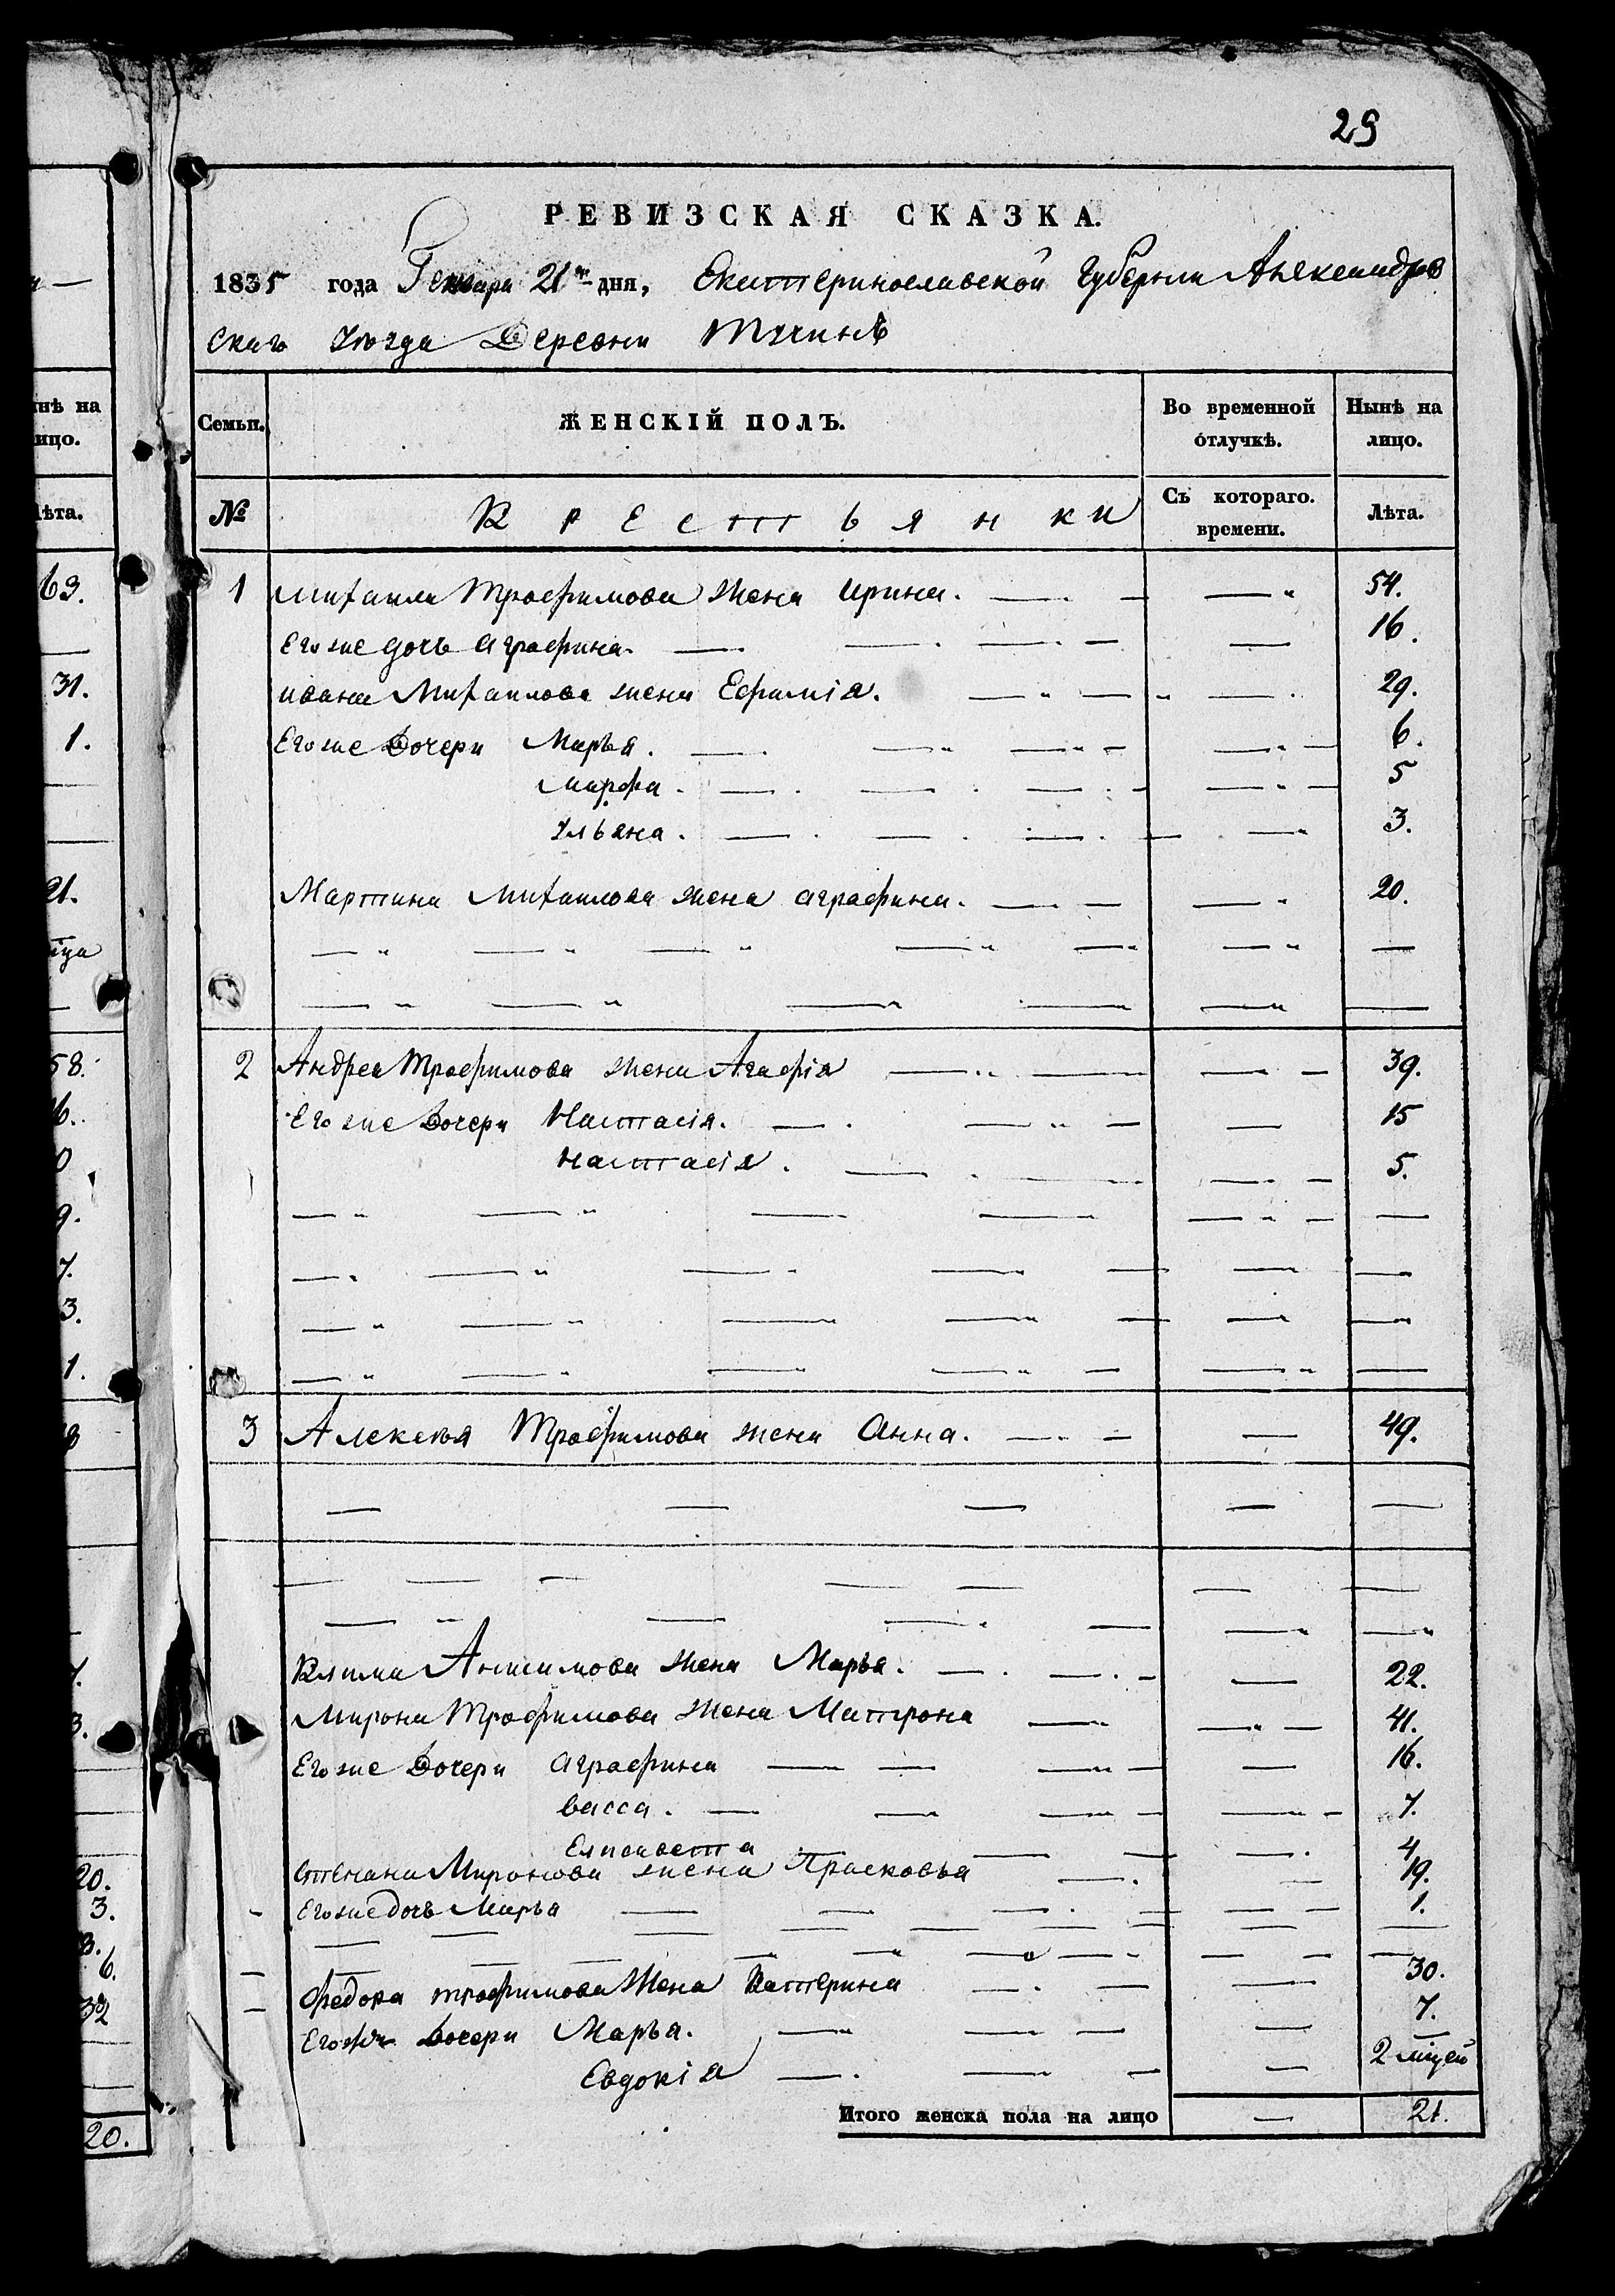 29
РЕВИЗСКАЯ СКАЗКА.
1835 года Генваря 21го дня, Екатеринославской Губернии Александров
скаго уезда Деревни
нѣ на
ицо.
Семьи.
ЖЕНСКІЙ ПОЛЪ.
Во временной отлучкѣ.
Нынѣ на лицо.
ѣта.
№
Крестьянки
Съ котораго. времени.
Лѣта.
63.
31.
1.
21.
58.
9.
7.
3.
1.
20.
3.
6.
32
20.
1 Михаила Трофимова жена Ирина. 54.
Его же дочь Аграфина. 16.
Ивана Михаилова жена Ефимія. 29.
Его же Дочери Марья. 6.
Марфа. 5
Ульяна. 3.
Мартина Михаилова жена Аграфина. 20.
2 Андрея Трофимова жена Агафія 39.
Его же Дочери Настасія. 15
Настасія. 5.
3 Алексея Трофимова жена Анна. 49.
Клима Анисимова жена Марья. 22.
Мирона Трофимова жена Матрона 41.
Его же Дочери Аграфина 16.
Васса. 7.
Елисавета 4
Степана Миронова жена Прасковья 19.
Его же дочь Марья 1.
Федора Трофимова Жена Катерина 30.
Его же Дочери Марья. 7.
Евдокія 2 мцей
Итого женска пола на лицо 21.